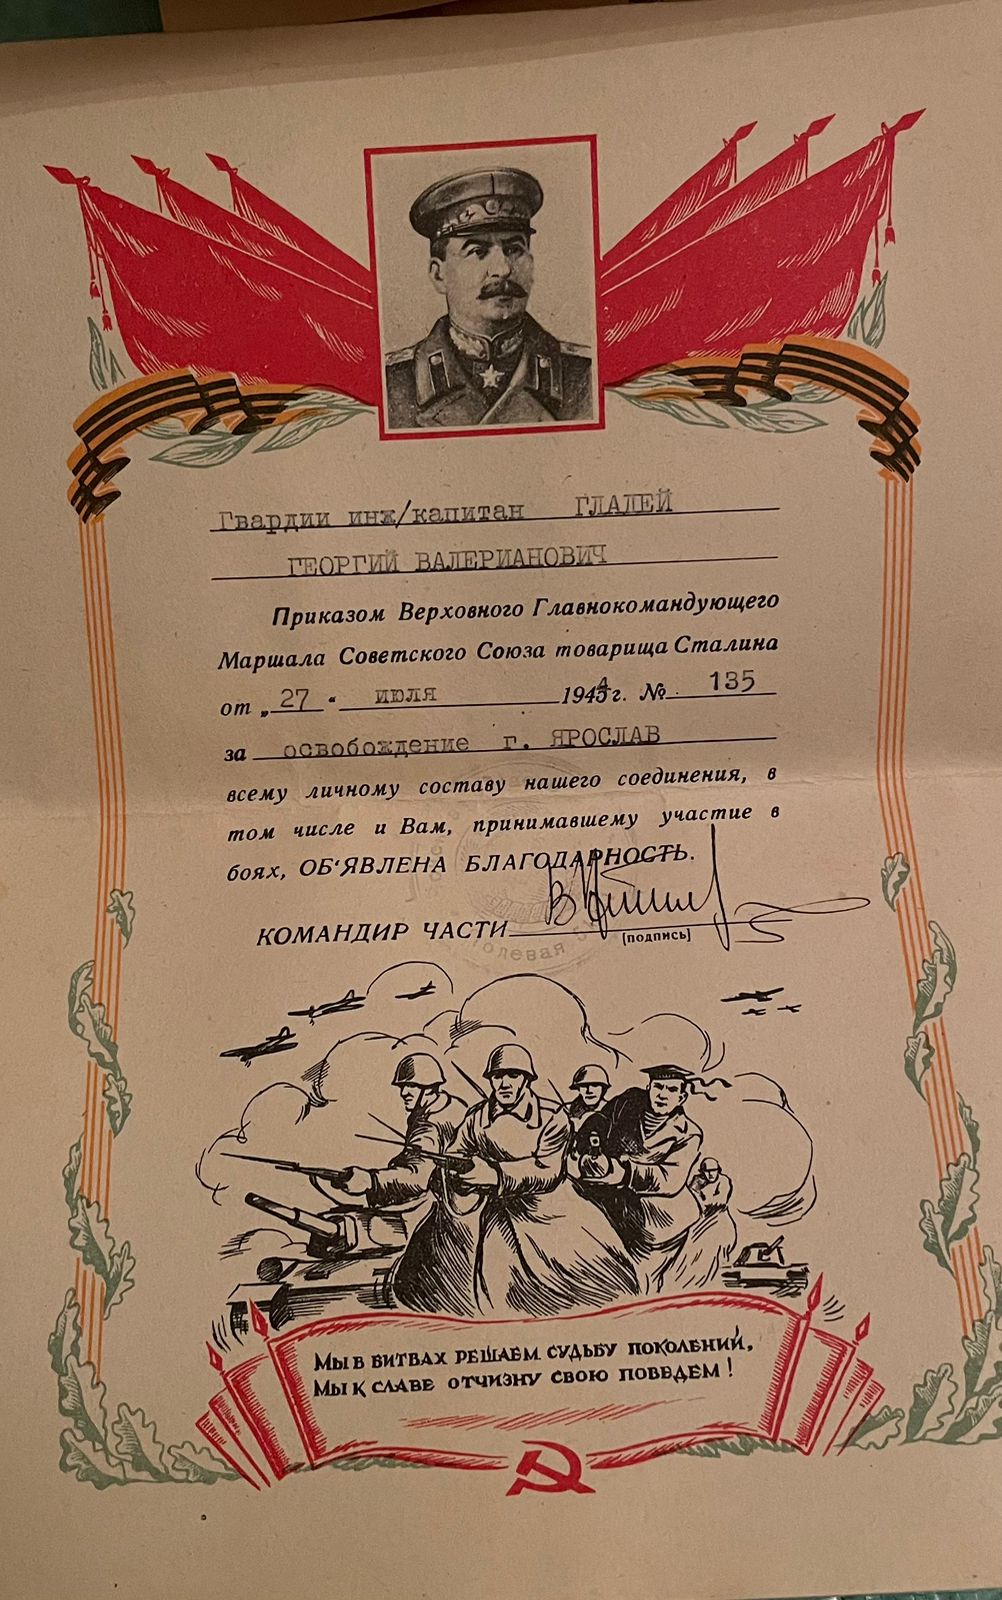 Гвардии инж/капитан ГЛАДЕЙ
ГЕОРГИЙ ВАЛЕРИАНОВИЧ
Приказом Верховного Главнокомандующего
Маршала Советского Союза товарища Сталина
от „27" июля 1944 г. № 135
за освобождение г. ЯРОСЛАВ
всему личному составу нашего соединения, в
том числе и Вам, принимавшему участие в
боях, ОБ'ЯВЛЕНА БЛАГОДАРНОСТЬ.
КОМАНДИР ЧАСТИ
[подпись]
полевая
МЫ В БИТВАХ РЕШАЕМ СУДЬБУ ПОКОЛЕНИЙ,
МЫ К СЛАВЕ ОТЧИЗНУ СВОЮ ПОВЕДЕМ!